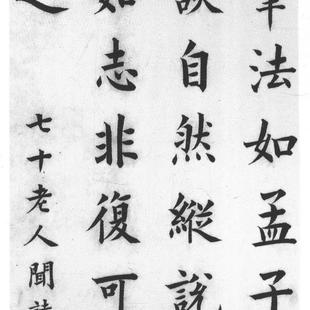 法如孟子
自然縱說
如志非復可
七十老人聞